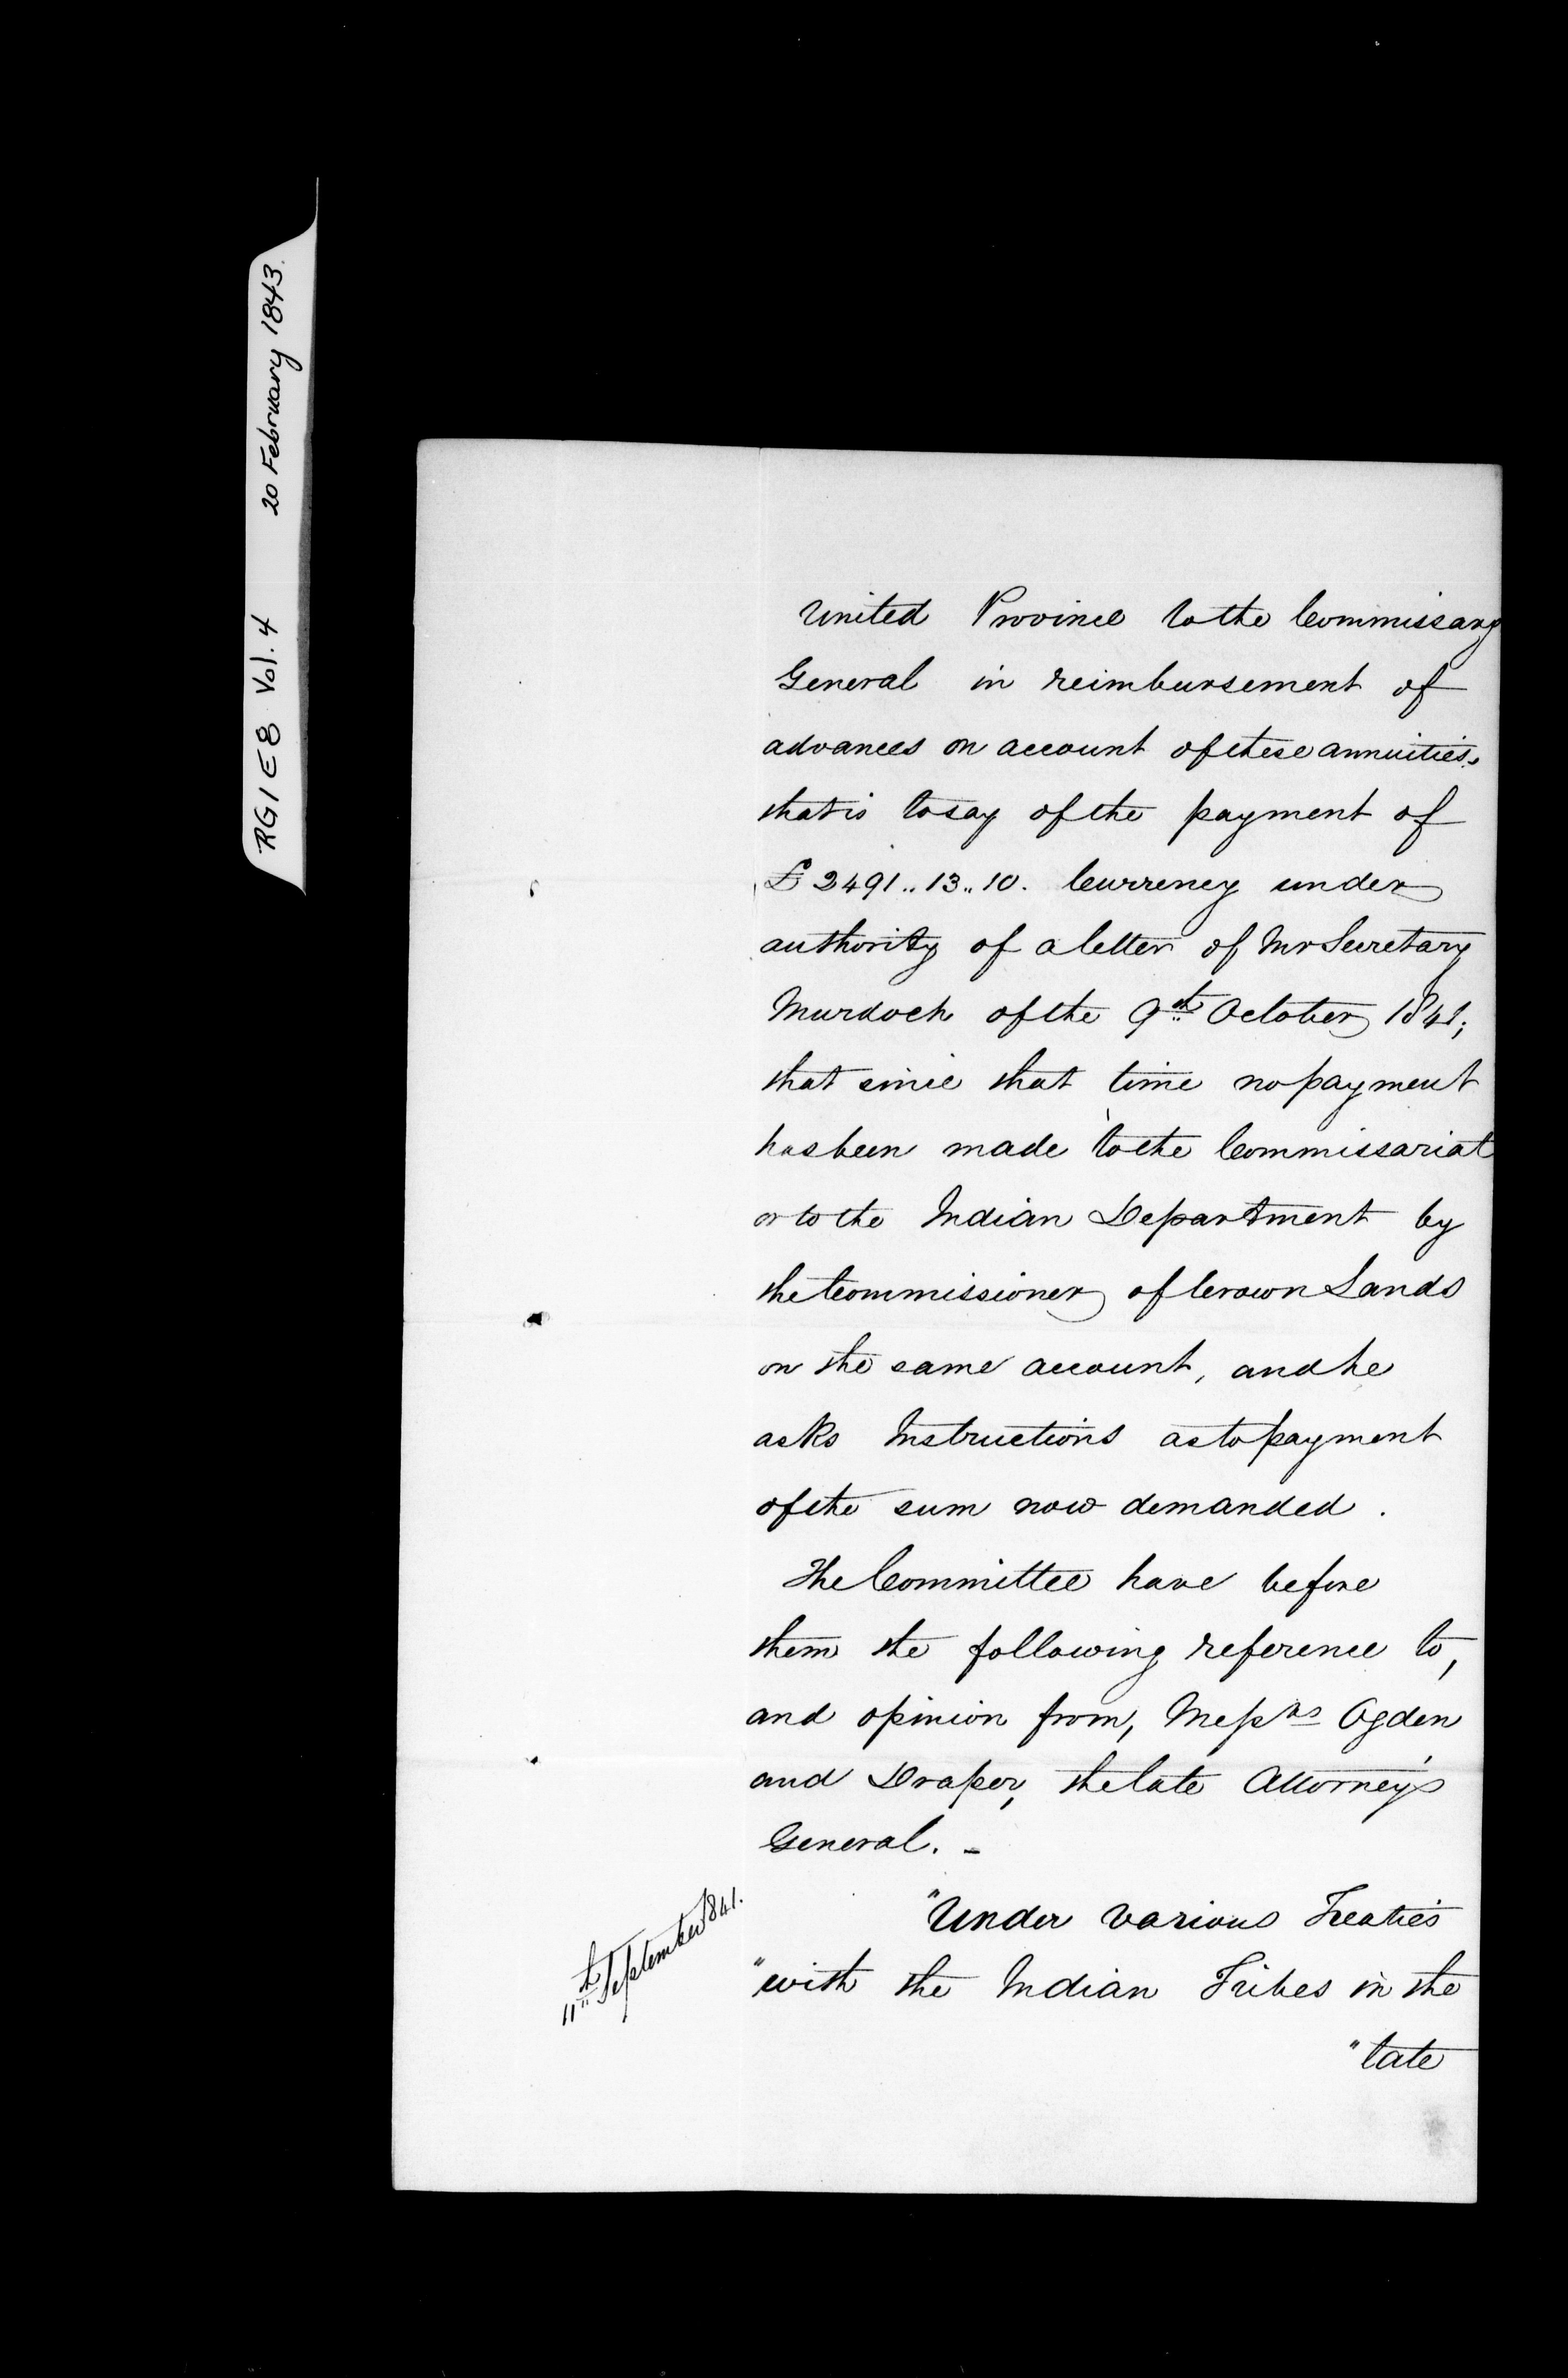 RG1 E8 Vol. 4 20 February 1843.
United Province to the Commissary
General in reimbursement of
advances on account of these annuities,
that is to say of the payment of
£2491..13..10. Currency under
authority of a letter of Mr Secretary
Murdoch of the 9th October 1841;
that since that time no payment
has been made to the Commissariat
or to the Indian Department by
the Commissioner of Crown Lands
on the same account, and he
asks Instructions as to payment
of the sum now demanded.
The Committee have before
them the following reference to,
and opinion from, Messrs Ogden
and Draper, the late Attorney's
General. -
11th September 1841.
"Under various Treaties
"with the Indian Tribes in the
"late